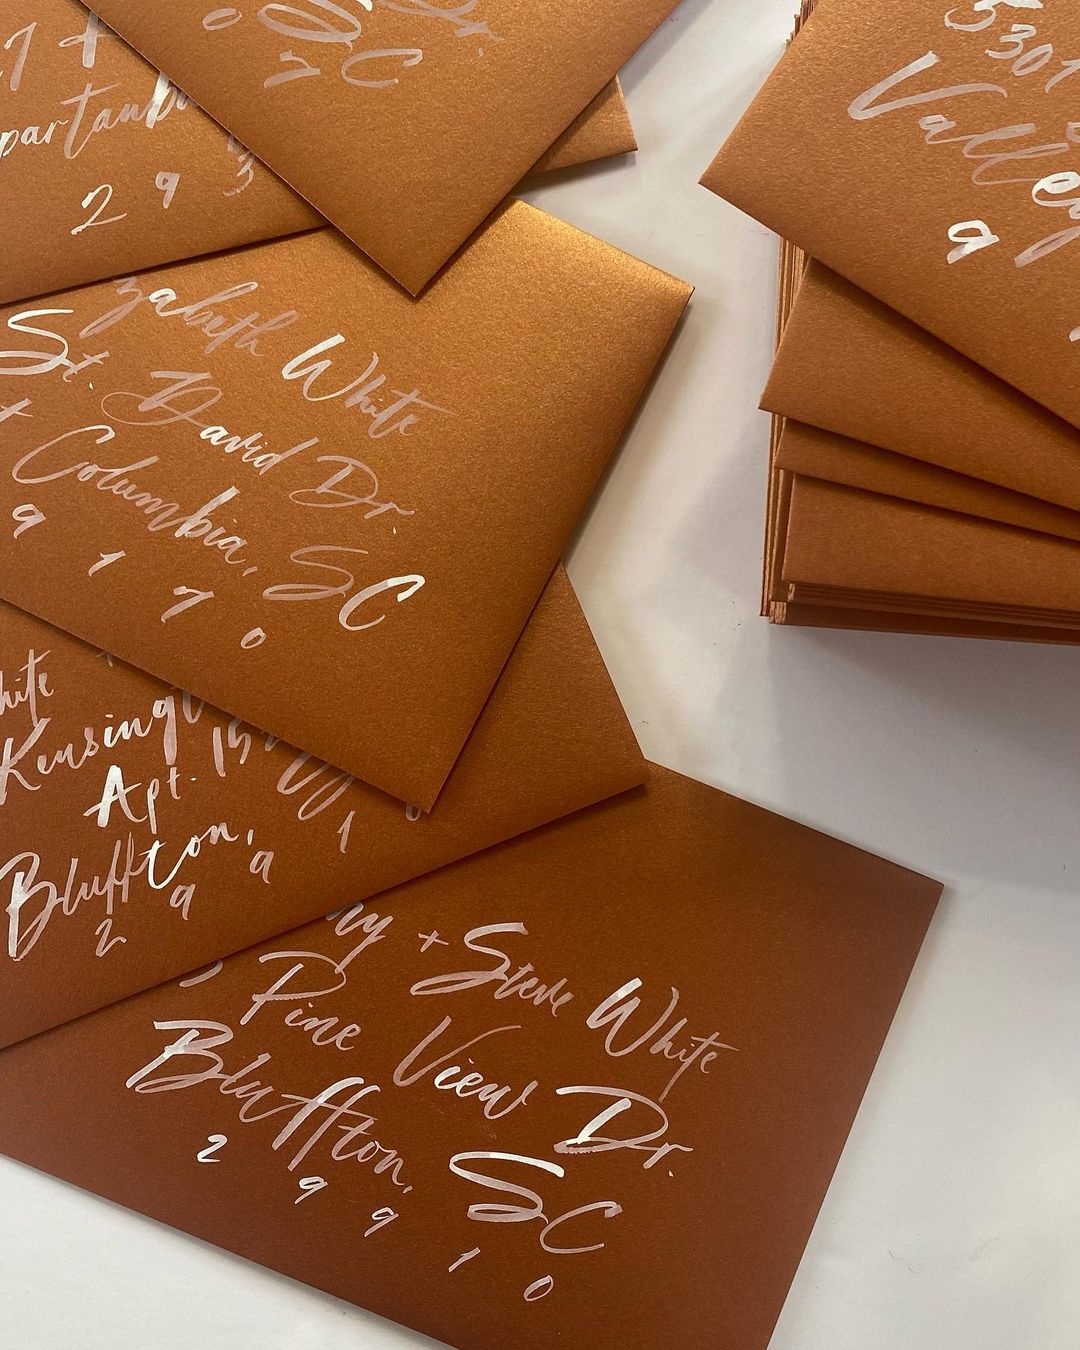 Dr.
SC
0 7
17 +
partanbu
2 9 3
5301
Valley
9
zabeth White
St. David Dr.
t Columbia, SC
9 1 7 0
hite
Kensingt
Apt. 15
Bluffton,
2 9 9 1 0
ny + Steve White
Pine View Dr.
Bluffton, SC
2 9 9 1 0